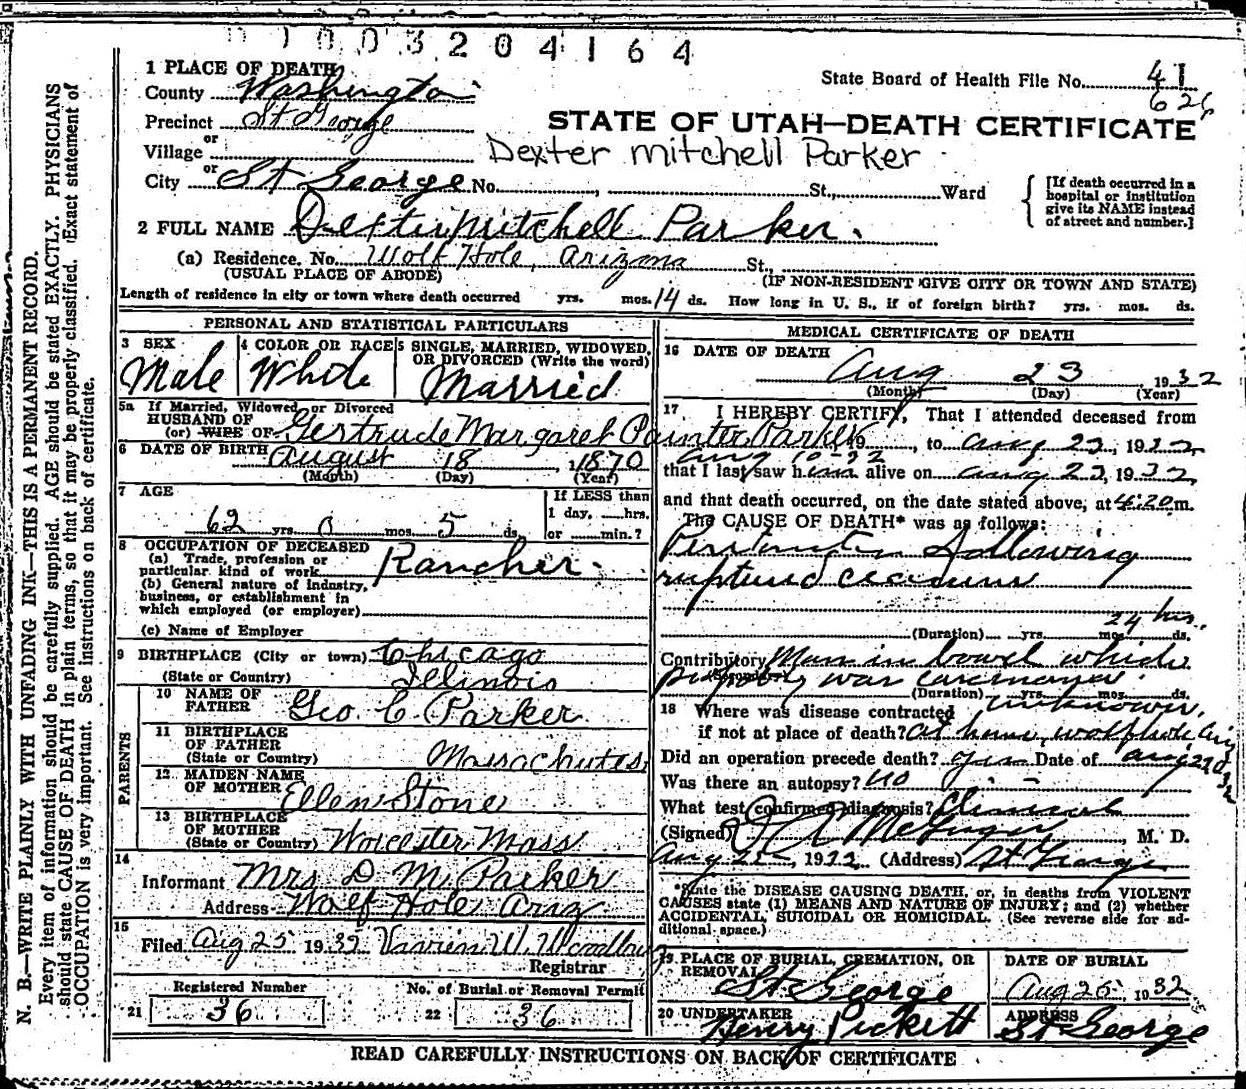 1003204164
1 PLACE OF DEATH
County Washington
State Board of Health File No. 41
626
Precinct St George
STATE OF UTAH—DEATH CERTIFICATE
or
Village
Dexter Mitchell Parker
or
City St George No. , St., Ward
[If death occurred in a
hospital or institution
give its NAME instead
of street and number.]
2 FULL NAME Dexter Mitchell Parker.
(a) Residence. No. Wolf Hole, Arizona St.,
(USUAL PLACE OF ABODE) (IF NON-RESIDENT GIVE CITY OR TOWN AND STATE)
Length of residence in city or town where death occurred yrs. mos. 14 ds. How long in U. S., if of foreign birth? yrs. mos. ds.
PERSONAL AND STATISTICAL PARTICULARS
3 SEX
Male
4 COLOR OR RACE
White
5 SINGLE, MARRIED, WIDOWED,
OR DIVORCED (Write the word)
Married
5a If Married, Widowed or Divorced
HUSBAND OF
(or) WIFE OF Gertrude Margaret Painter Parker
6 DATE OF BIRTH August 18, 1870
(Month) (Day) (Year)
7 AGE
62 yrs. 0 mos. 5 ds.
If LESS than
1 day, hrs.
or min.?
8 OCCUPATION OF DECEASED
(a) Trade, profession or
particular kind of work Rancher.
(b) General nature of industry,
business, or establishment in
which employed (or employer)
(c) Name of Employer
9 BIRTHPLACE (City or town) Chicago
(State or Country) Illinois
PARENTS
10 NAME OF
FATHER Geo. C. Parker
11 BIRTHPLACE
OF FATHER
(State or Country) Massachutes
12 MAIDEN NAME
OF MOTHER Ellen Stone
13 BIRTHPLACE
OF MOTHER
(State or Country) Worcester Mass
14
Informant Mrs D. M. Parker
Address Wolf Hole Ariz
15
Filed Aug 25 1932 Vivien W.
Registrar
Registered Number
21 36
No. of Burial or Removal Permit
22 36
MEDICAL CERTIFICATE OF DEATH
16 DATE OF DEATH
Aug 23, 1932
(Month) (Day) (Year)
17 I HEREBY CERTIFY, That I attended deceased from
Aug 10-32 19 , to Aug 23, 1932
that I last saw him alive on Aug 23, 1932
and that death occurred, on the date stated above, at 4:20 m.
The CAUSE OF DEATH* was as follows:
following
ruptured
24 hrs.
(Duration) yrs. mos. ds.
Contributory Mass in bowel which
probably was carcinoma.
(Duration) yrs. mos. ds.
18 Where was disease contracted unknown.
if not at place of death? At home, Wolfhole, Ariz
Did an operation precede death? yes Date of Aug 22
Was there an autopsy? no
What test confirmed diagnosis? Clinical
(Signed) McGregor, M. D.
Aug 25, 1932 (Address) St George
*State the DISEASE CAUSING DEATH, or, in deaths from VIOLENT
CAUSES state (1) MEANS AND NATURE OF INJURY; and (2) whether
ACCIDENTAL, SUICIDAL OR HOMICIDAL. (See reverse side for ad-
ditional space.)
19 PLACE OF BURIAL, CREMATION, OR
REMOVAL
St George
DATE OF BURIAL
Aug 25, 1932
20 UNDERTAKER
Henry Pickett
ADDRESS
St George
READ CAREFULLY INSTRUCTIONS ON BACK OF CERTIFICATE
N. B.—WRITE PLAINLY WITH UNFADING INK—THIS IS A PERMANENT RECORD.
Every item of information should be carefully supplied. AGE should be stated EXACTLY. PHYSICIANS
should state CAUSE OF DEATH in plain terms, so that it may be properly classified. Exact statement of
OCCUPATION is very important. See instructions on back of certificate.